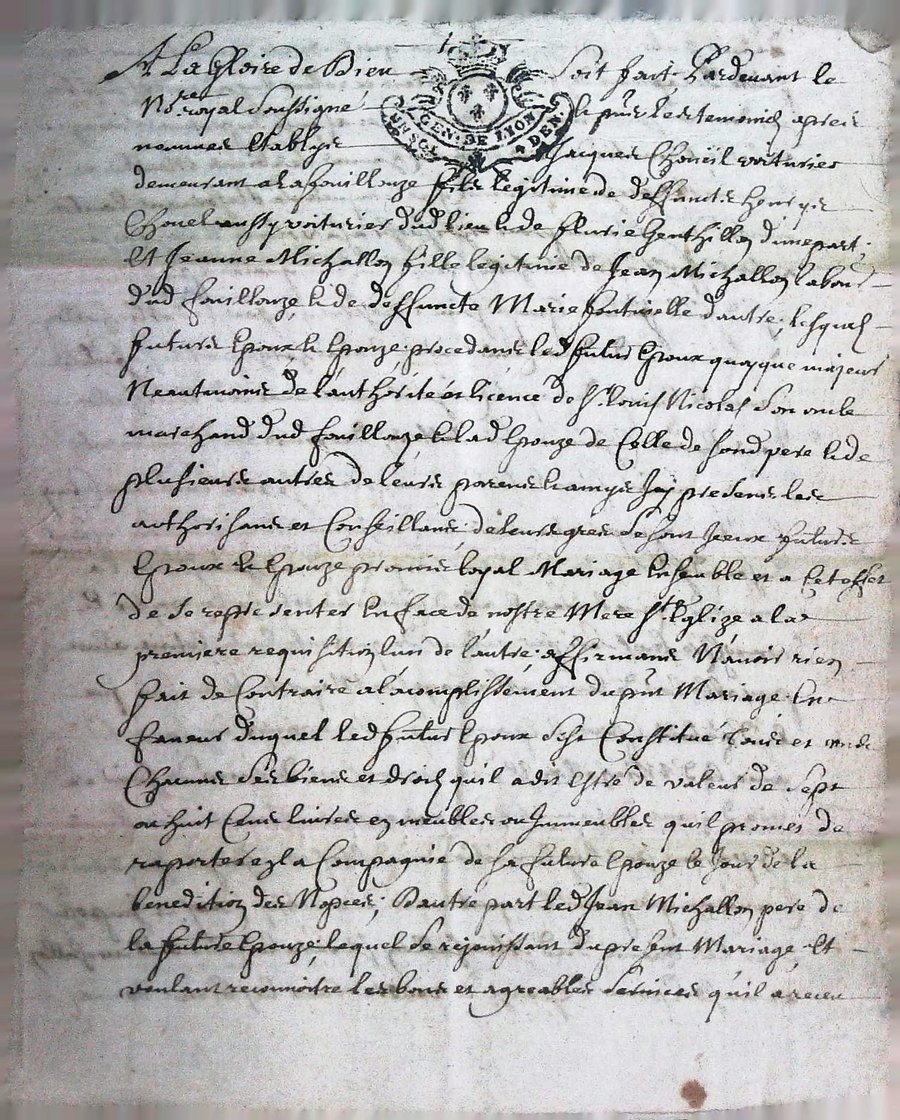 A La Gloire de Dieu Soit fait Pardevant le
GEN. DE LYON
4 DEN.
No.re royal soussigné & pnts les temoins apres
nommes Establys Jacques Choüel voiturier
demeurant a la fouillouze fils legitime de deffuncts
Choüel aussy voiturier dud lieu & de flurie Genthillon d'une part;
Et Jeanne Michallon fille legitime de Jean Michallon labour
dud fouillouze, & de deffuncte Marie fontvielle d'autre; lesquels
futurs Epoux & Epouze; procedans led futur Epoux quoyque majeur
Neantmoins de l'authorité et licence de Sr. Louis Nicolas son oncle
marchand dud fouillouze & lad Epouze de Celle de sond pere & de
plusieurs autres de leurs parens & amys Jcy presens les
authorisans et Conseillans; de leurs gres se sont Jceux futurs
Epoux & Epouze promis loyal Mariage Ensemble et a Cet effet
de se representer En face de nostre Mere Ste. Eglize a la
premiere requisition l'un de l'autre; affirmans N'avoir rien
fait de Contraire a l'acomplissement du pnt Mariage En
faveur duquel led futur Epoux s'est Constitué Tous et
Chacuns ses biens et droits qu'il a dit Estre de valeur de sept
ou huit Cens livres en meubles ou Immeubles qu'il promet de
raporter en la Compagnie de sa future Epouze le Jour de la
benediction des Nopces; D'autre part led Jean Michallon pere de
la future Epouze; lequel se rejouissant du present Mariage, Et
voulant reconnoitre les bons et agreables services qu'il a receu